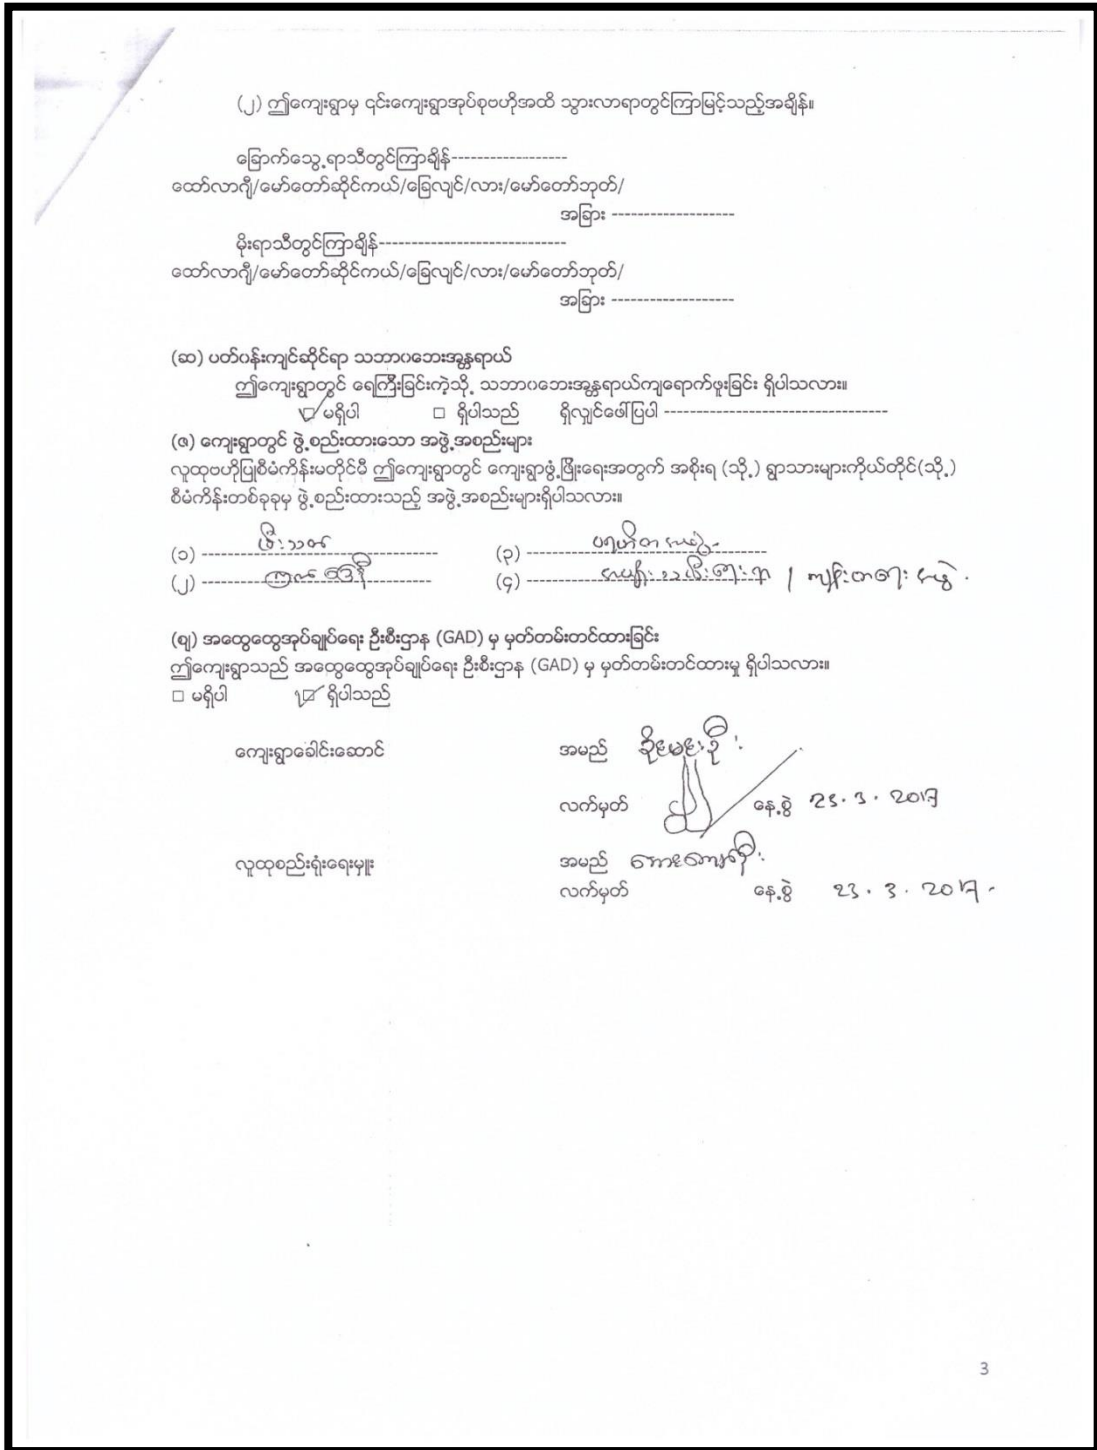 (၂) ဤကျေးရွာမှ ၎င်းကျေးရွာအုပ်စုဗဟိုအထိ သွားလာရာတွင်ကြာမြင့်သည့်အချိန်။
ခြောက်သွေ့ရာသီတွင်ကြာချိန်------------------
ထော်လာဂျီ/မော်တော်ဆိုင်ကယ်/ခြေလျင်/လား/မော်တော်ဘုတ်/
အခြား -------------------
မိုးရာသီတွင်ကြာချိန်-----------------------------
ထော်လာဂျီ/မော်တော်ဆိုင်ကယ်/ခြေလျင်/လား/မော်တော်ဘုတ်/
အခြား -------------------
(ဆ) ပတ်ဝန်းကျင်ဆိုင်ရာ သဘာဝဘေးအန္တရာယ်
ဤကျေးရွာတွင် ရေကြီးခြင်းကဲ့သို့ သဘာဝဘေးအန္တရာယ်ကျရောက်ဖူးခြင်း ရှိပါသလား။
☑ မရှိပါ □ ရှိပါသည် ရှိလျှင်ဖေါ်ပြပါ -----------------------------------
(ဇ) ကျေးရွာတွင် ဖွဲ့စည်းထားသော အဖွဲ့အစည်းများ
လူထုဗဟိုပြုစီမံကိန်းမတိုင်မီ ဤကျေးရွာတွင် ကျေးရွာဖွံ့ဖြိုးရေးအတွက် အစိုးရ (သို့) ရွာသားများကိုယ်တိုင်(သို့)
စီမံကိန်းတစ်ခုခုမှ ဖွဲ့စည်းထားသည့် အဖွဲ့အစည်းများရှိပါသလား။
(၁) မီးသတ် (၃) ပရဟိတအဖွဲ့
(၂) ကြက်ခြေနီ (၄) အမျိုးသမီးရေးရာ / ကျန်းမာရေးအဖွဲ့
(ဈ) အထွေထွေအုပ်ချုပ်ရေး ဦးစီးဌာန (GAD) မှ မှတ်တမ်းတင်ထားခြင်း
ဤကျေးရွာသည် အထွေထွေအုပ်ချုပ်ရေး ဦးစီးဌာန (GAD) မှ မှတ်တမ်းတင်ထားမှု ရှိပါသလား။
□ မရှိပါ ☑ ရှိပါသည်
ကျေးရွာခေါင်းဆောင် အမည်
လက်မှတ် နေ့စွဲ 23.3.2017
လူထုစည်းရုံးရေးမှူး အမည်
လက်မှတ် နေ့စွဲ 23.3.2017
3